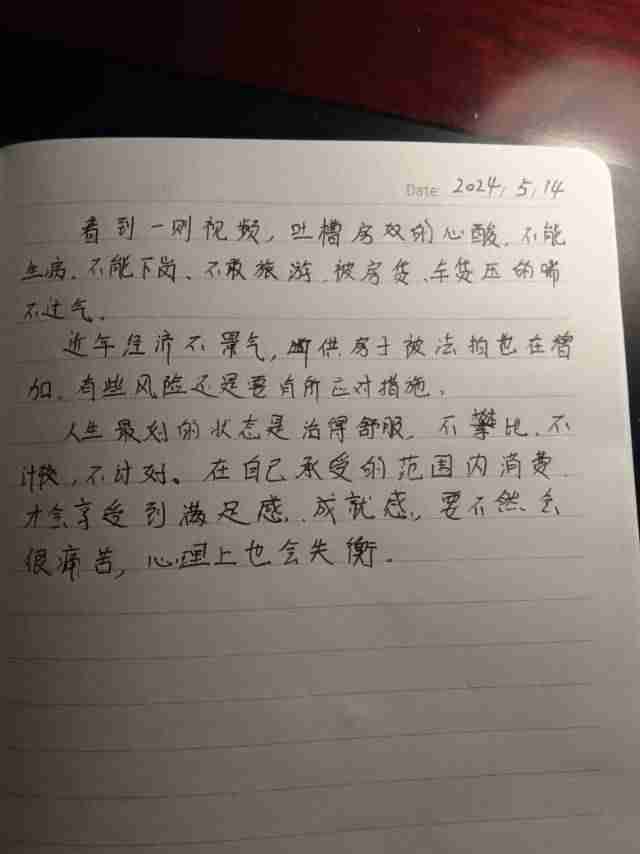 Date: 2024,5,14
看到一则视频,吐槽房奴的心酸,不能
生病、不能下岗、不敢旅游,被房贷、车贷压的喘
不过气。
近年经济不景气,断供房子被法拍也在增
加,有些风险还是要有所应对措施。
人生最好的状态是活得舒服,不攀比、不
计较,不讨好。在自己承受的范围内消费,
才会享受到满足感、成就感,要不然会
很痛苦,心理上也会失衡。